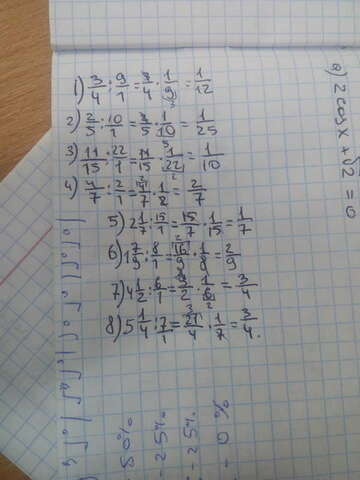 1) 3/4 : 9/1 = 3/4 · 1/9 = 1/12
2) 2/5 : 10/1 = 2/5 · 1/10 = 1/25
3) 11/15 : 22/1 = 11/15 · 1/22 = 1/10
4) 4/7 : 2/1 = 4/7 · 1/2 = 2/7
5) 2 1/7 : 15/1 = 15/7 · 1/15 = 1/7
6) 1 7/9 : 8/1 = 16/9 · 1/8 = 2/9
7) 4 1/2 : 6/1 = 9/2 · 1/6 = 3/4
8) 5 1/4 : 7/1 = 21/4 · 1/7 = 3/4.
a) 2cosx + √2 = 0
80%
- 25%
- 25%
- 0%